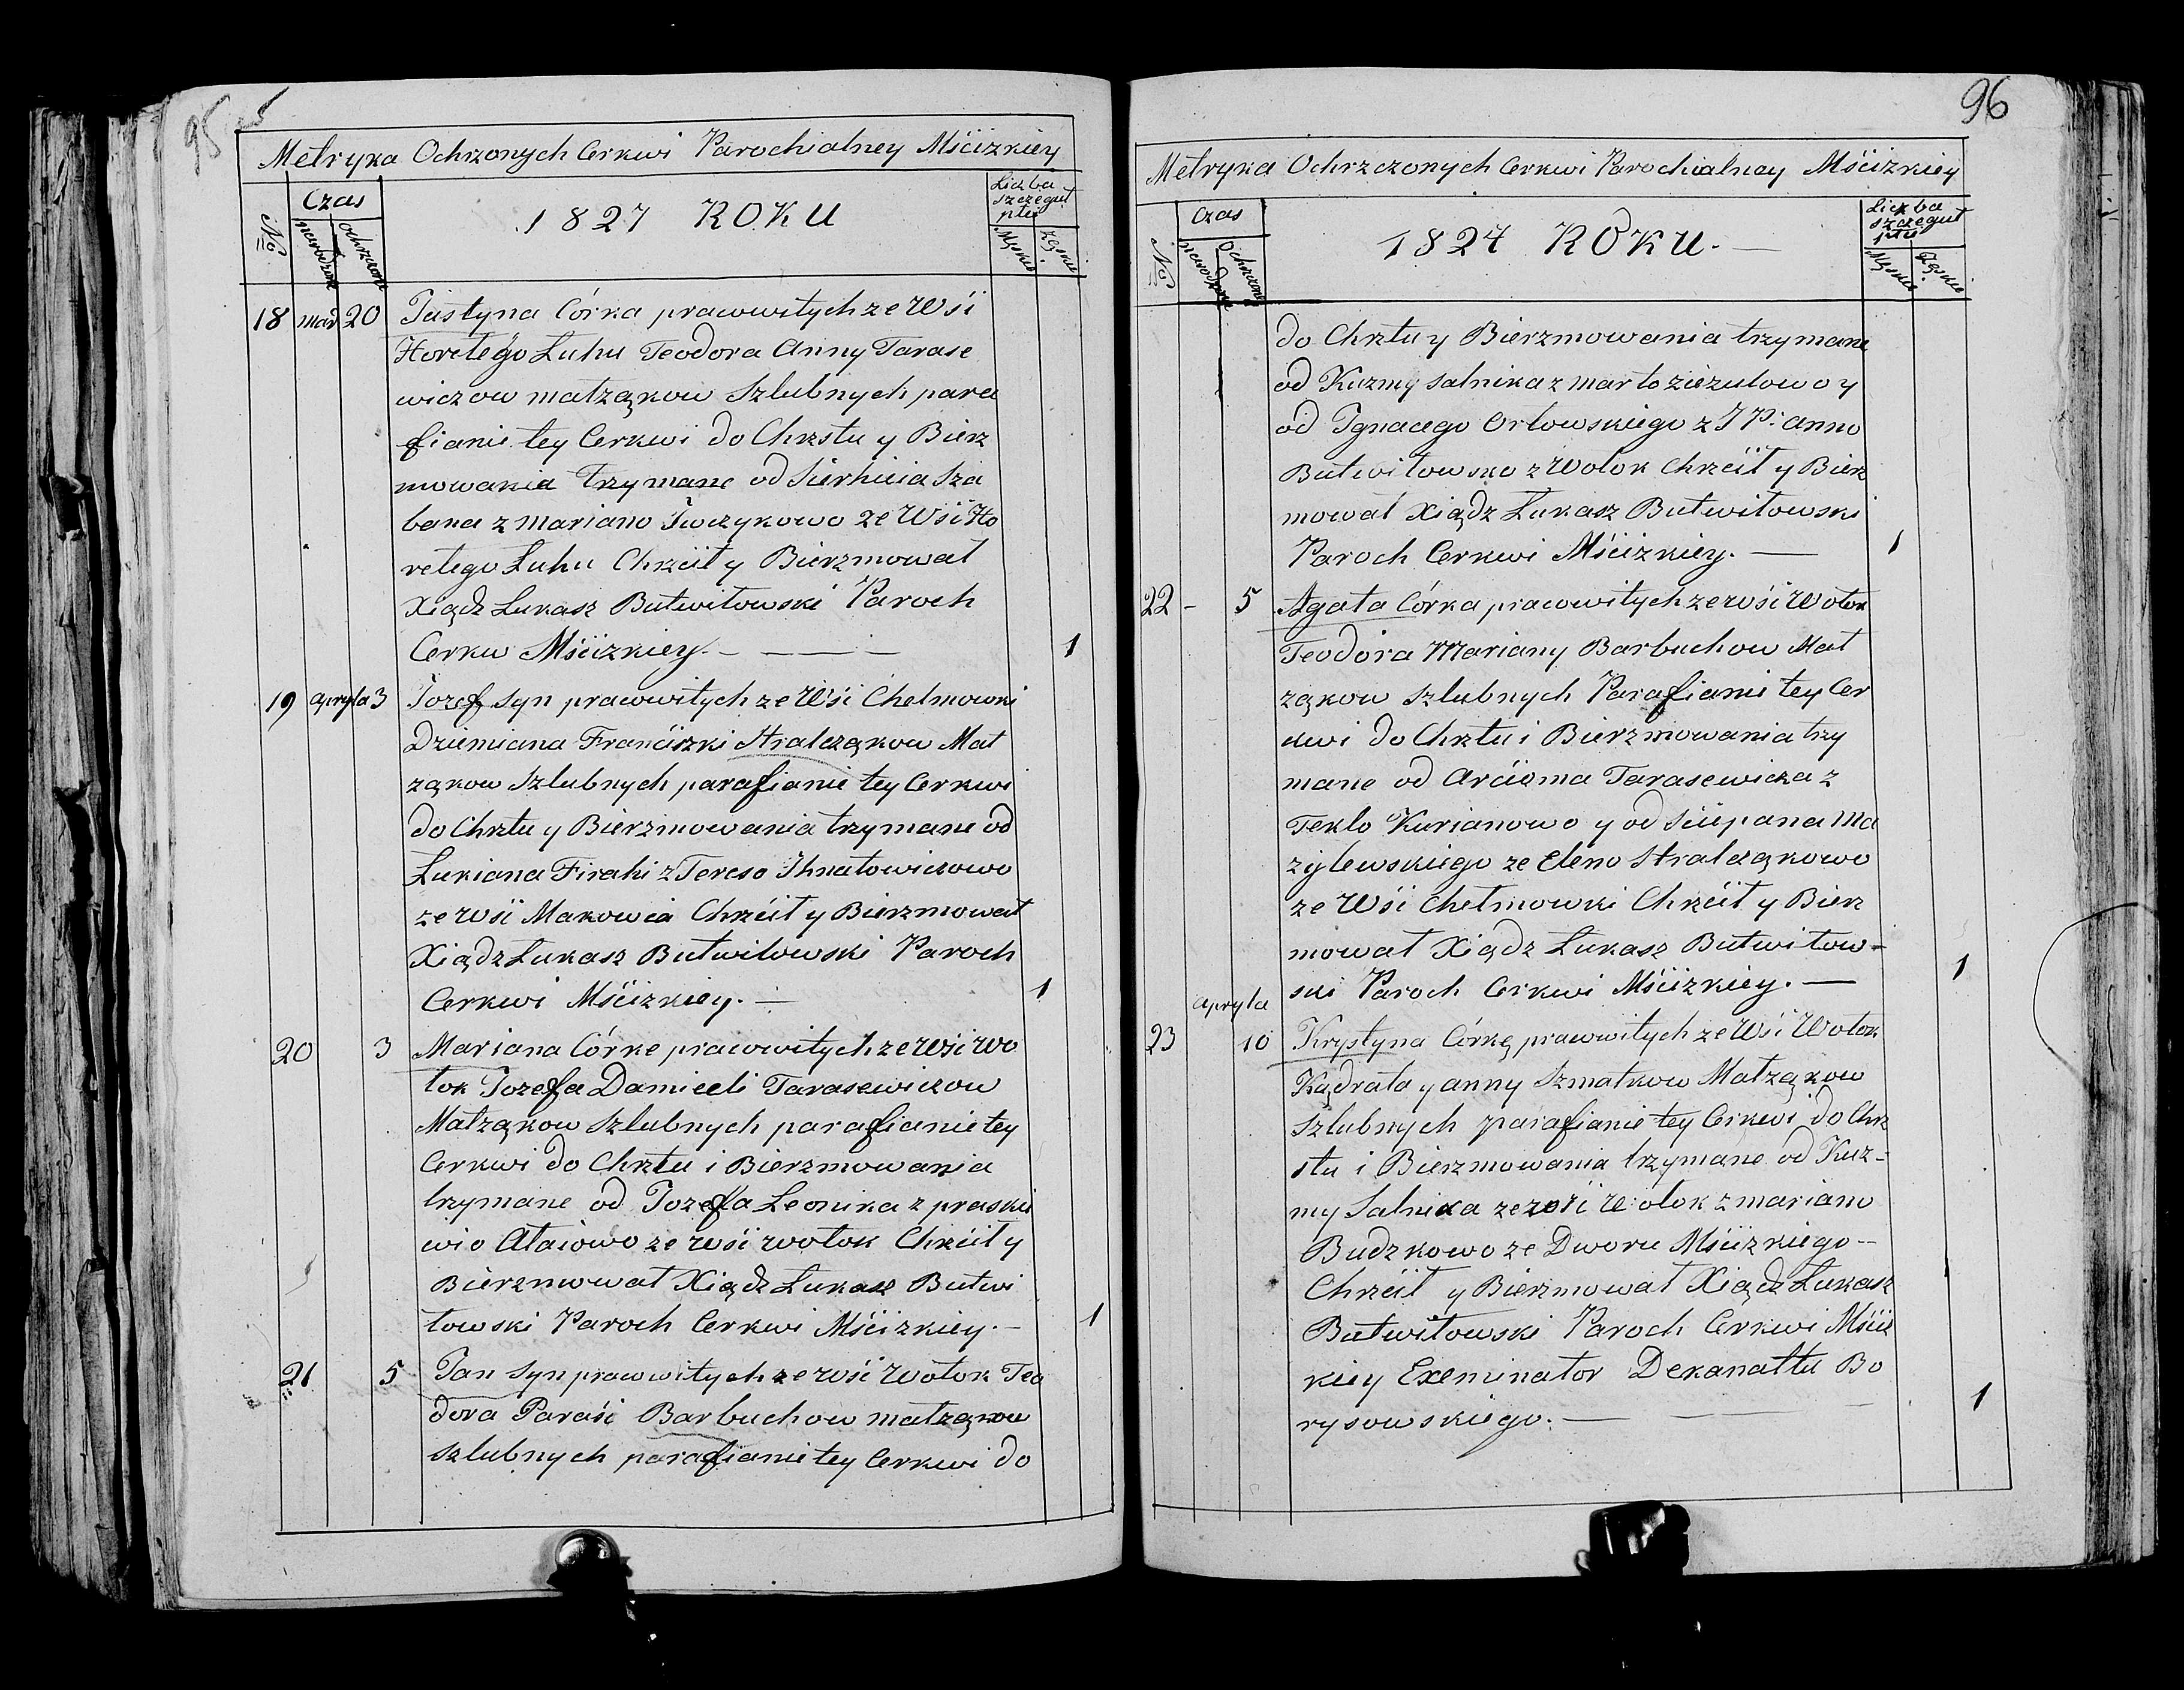 95
Metryka Ochrzonych Cerkwi Parochialney Mścizkiey
№
Czas
narodzenia
Ochrzczenia
1827 ROKU
Liczba szczegul
płci
Męskie
Żęskie
18 mar 20 Justyna Córka pracowitych ze Wśi
Horełego Luhu Teodora Anny Tarase
wiczow małząkow Szlubnych para
fianie tey Cerkwi do Chrzstu y Bierz
mowania trzymane od Sierhieia Sza
bana z mariano Iwczykowo ze Wśi Ho
rełego Luhu Chrzcił y Bierzmował
Xiądz Łukasz Butwiłowski Paroch
Cerkw Mścizkiey. 1
19 apryla 3 Jozef syn pracowitych ze Wśi Chełmowki
Dziemiana Franciszki Stralcząkow Mał
ząkow Szlubnych parafianie tey Cerkwi
do Chrztu y Bierzmowania trzymane od
Łukiana Firahi z Tereso Ihnatowiczowo
ze wśi Makowia Chrzcił y Bierzmował
Xiądz Łukasz Butwiłowski Paroch
Cerkwi Mścizkiey. 1
20 3 Mariana Córke pracowitych ze Wśi Wo
łok Jozefa Danieeli Tarasewiczow
Małząkow Szlubnych parafianie tey
Cerkwi do Chrztu i Bierzmowania
trzymane od Jozefa Leonika z praskie
wio Ataiowo ze wśi wołok Chrzcił y
Bierzmował Xiądz Łukasz Butwi
łowski Paroch Cerkwi Mścizkiey. 1
21 5 Jan syn pracowitych ze wśi Wołok Teo
dora Paraśi Barbuchow małząkow
szlubnych parafianie tey Cerkwi do
96
Metryka Ochrzczonych Cerkwi Parochialney Mścizkiey
№
Czas
narodzenia
Ochrzczenia
1827 ROKU.
Liczba szczegul
płci
Męskie
Żęskie
do Chrztu y Bierzmowania trzymane
od Kuzmy Salnika z marto ziezulowo y
od Ignacego Orłowskiego z JP. anno
Butwiłowsko z Wołok Chrzcił y Bierz
mował Xiądz Łukasz Butwiłowski
Paroch Cerkwi Mścizkiey. 1
22 - 5 Agata Córka pracowitych ze wśi Wołok
Teodora Mariany Barbuchow Mał
ząkow szlubnych Parafianie tey Cer
kwi do Chrztu i Bierzmowania trzy
mane od Arcioma Tarasewicza z
Teklo Kurianowo y od Sciepana Ma
zylewskiego ze Eleno Stralcząkowo
ze Wśi Chełmowki Chrzcił y Bierz
mował Xiądz Łukasz Butwiłow-
ski Paroch Cerkwi Mścizkiey. 1
apryla
23 10 Krystyna Córkę pracowitych ze Wśi Wołok
Kądrata y anny Szmatkow Małząkow
szlubnych parafianie tey Cerkwi do Chrz
stu i Bierzmowania trzymane od Kuz-
my Salnika ze wśi Wołok z mariano
Budzkowo ze Dworu Mścizkiego
Chrzcił y Bierzmował Xiądz Łukasz
Butwiłowski Paroch Cerkwi Mściz
kiey Exeminator Dekanattu Bo
rysowskiego. 1